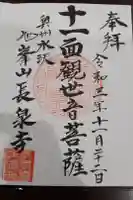 奉拝
令和三年十一月二十一日
十一面観世音菩薩
奥州水沢
峯山長泉寺